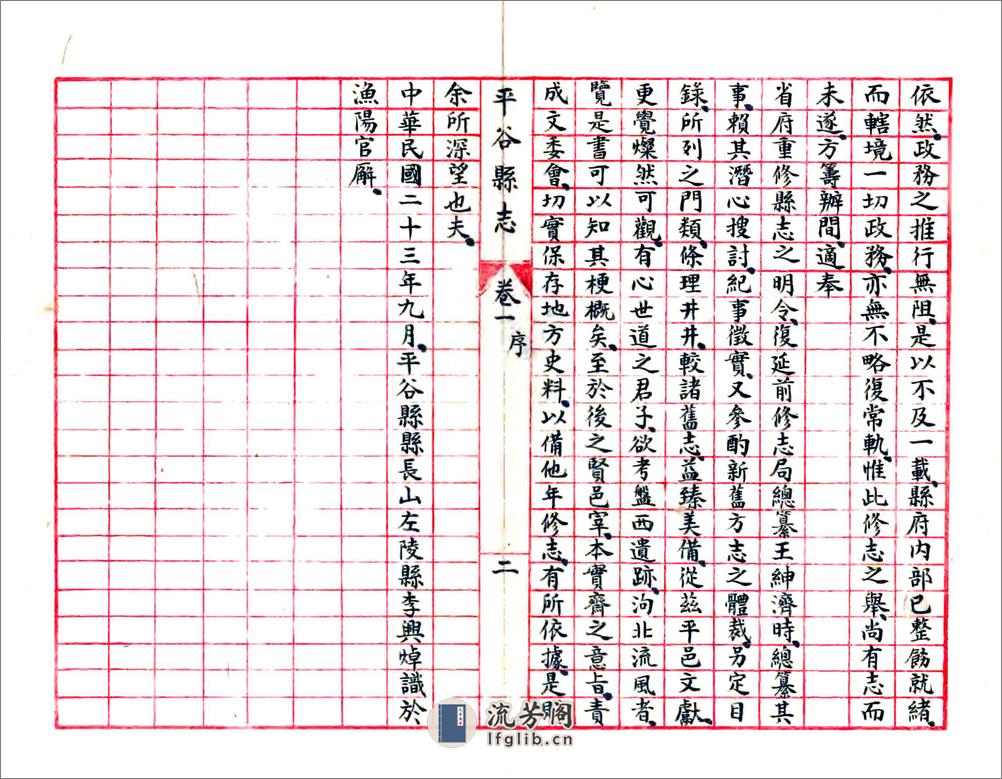 依然、政務之推行無阻、是以不及一載、縣府內部已整飭就緒、
而轄境一切政務、亦無不略復常軌、惟此修志之舉、尚有志而
未遂、方籌辦間、適奉
省府重修縣志之明令、復延前修志局總纂王紳濟時、總纂其
事、賴其潛心搜討、紀事徵實、又參酌新舊方志之體裁、另定目
錄、所列之門類、條理井井、較諸舊志、益臻美備、從茲平邑文獻、
更覺燦然可觀、有心世道之君子、欲考盤西遺跡、泃北流風者、
覽是書可以知其梗概矣、至於後之賢邑宰、本實齋之意旨、責
成文委會、切實保存地方史料、以備他年修志、有所依據、是則
平谷縣志 卷一 序 二
余所深望也夫、
中華民國二十三年九月、平谷縣縣長山左陵縣李興焯識於
漁陽官廨、
流芳阁
lfglib.cn